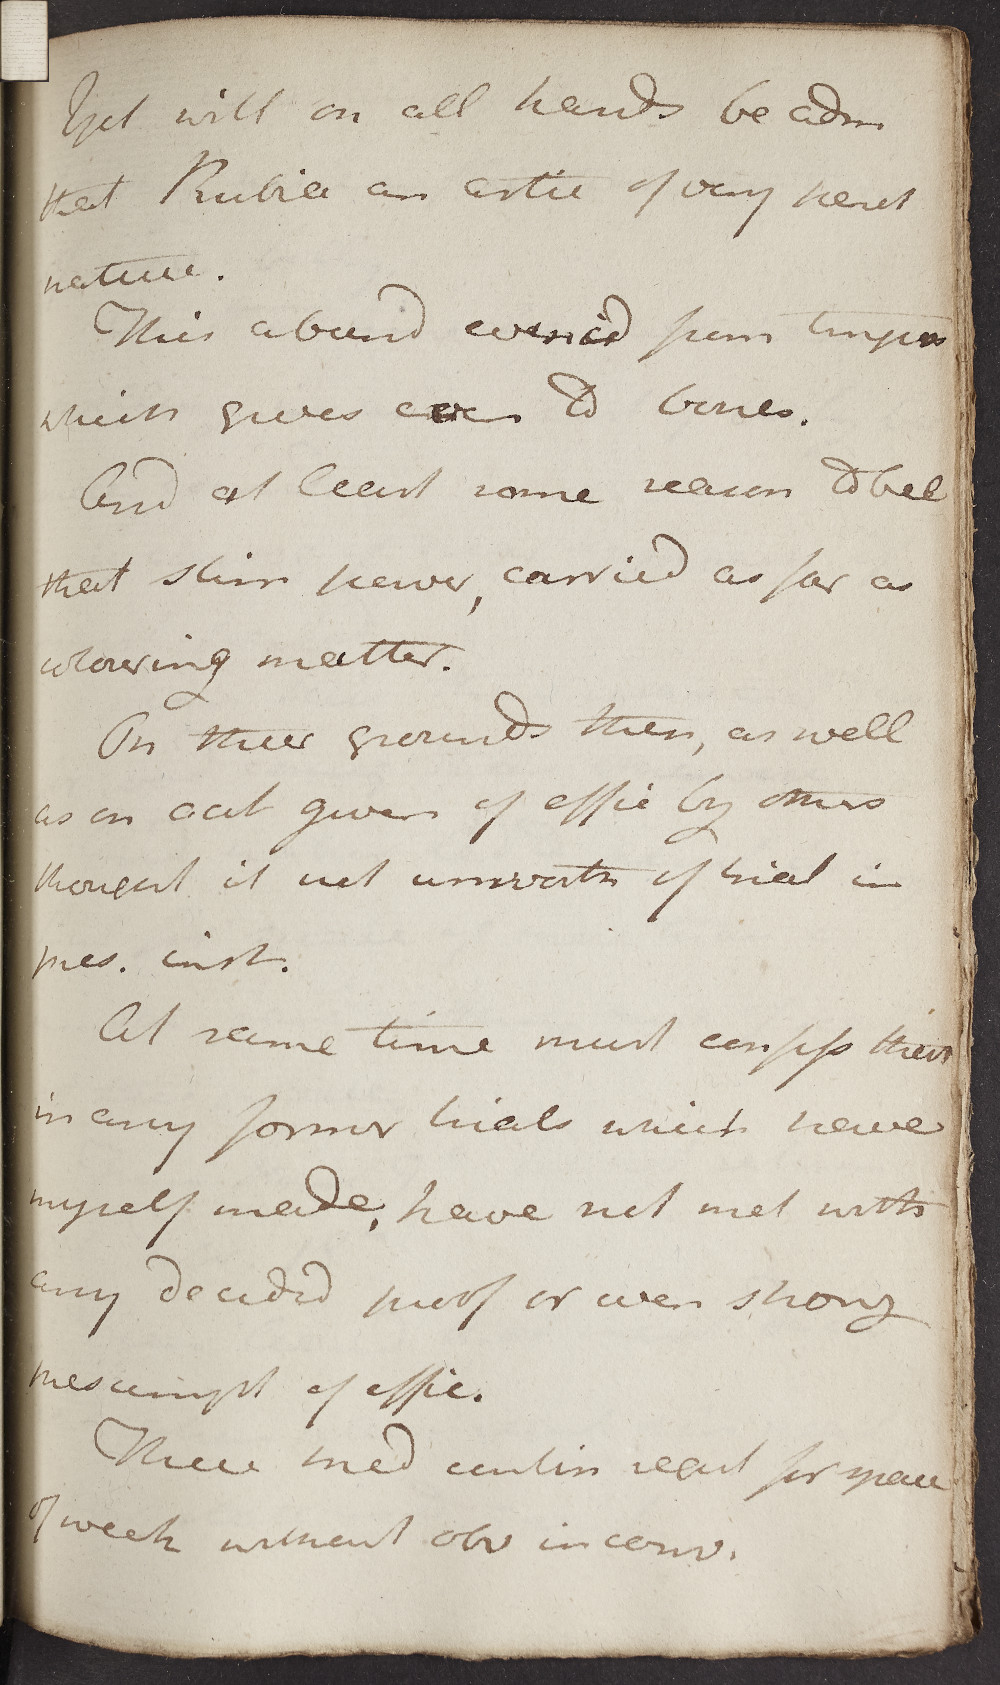 Yet will on all hands be adm
that Rubia an artic of very penet
nature.
This abund evencd from tinge
which gives even to bones.
And at least some reason to bel
that stim power, carried as far as
colouring matter.
On these grounds then, as well
as on acct given of effic by others
thought it not unworth of trial in
pres. inst.
At same time must confess that
in any former trials which have
myself made, have not met with
any decided proof or even strong
presumpt of effic.
These med contin regul for space
of week without obv in conv.